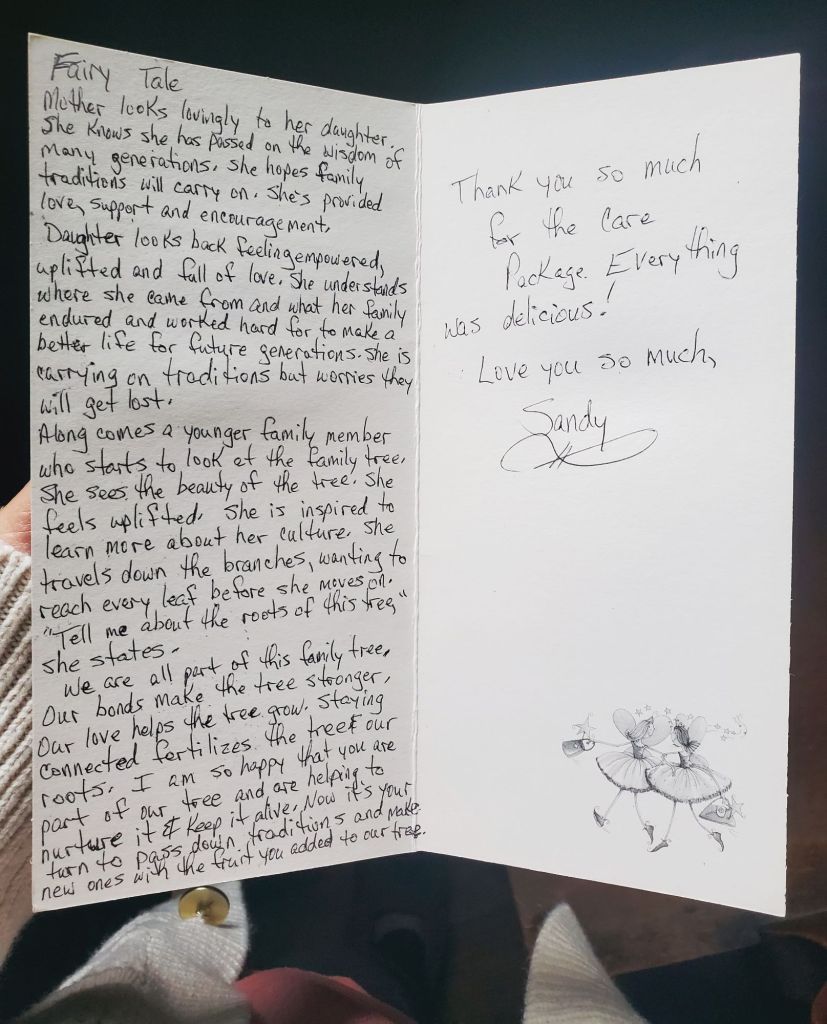 Fairy Tale
Mother looks lovingly to her daughter.
She knows she has passed on the wisdom of
many generations. she hopes family
traditions will carry on. She's provided
love, support and encouragement.
Daughter looks back feeling empowered,
uplifted and full of love. She understands
where she came from and what her family
endured and worked hard for to make a
better life for future generations. She is
carrying on traditions but worries they
will get lost.
Along comes a younger family member
who starts to look at the family tree.
She sees the beauty of the tree. She
feels uplifted. She is inspired to
learn more about her culture. She
travels down the branches, wanting to
reach every leaf before she moves on.
"Tell me about the roots of this tree,"
she states.
We are all part of this family tree.
Our bonds make the tree stronger.
Our love helps the tree grow. Staying
connected fertilizes the tree & our
roots. I am so happy that you are
part of our tree and are helping to
nurture it & keep it alive. Now it's your
turn to pass down traditions and make
new ones with the fruit you added to our tree.
Thank you so much
for the Care
Package. Everything
was delicious!
Love you so much,
Sandy